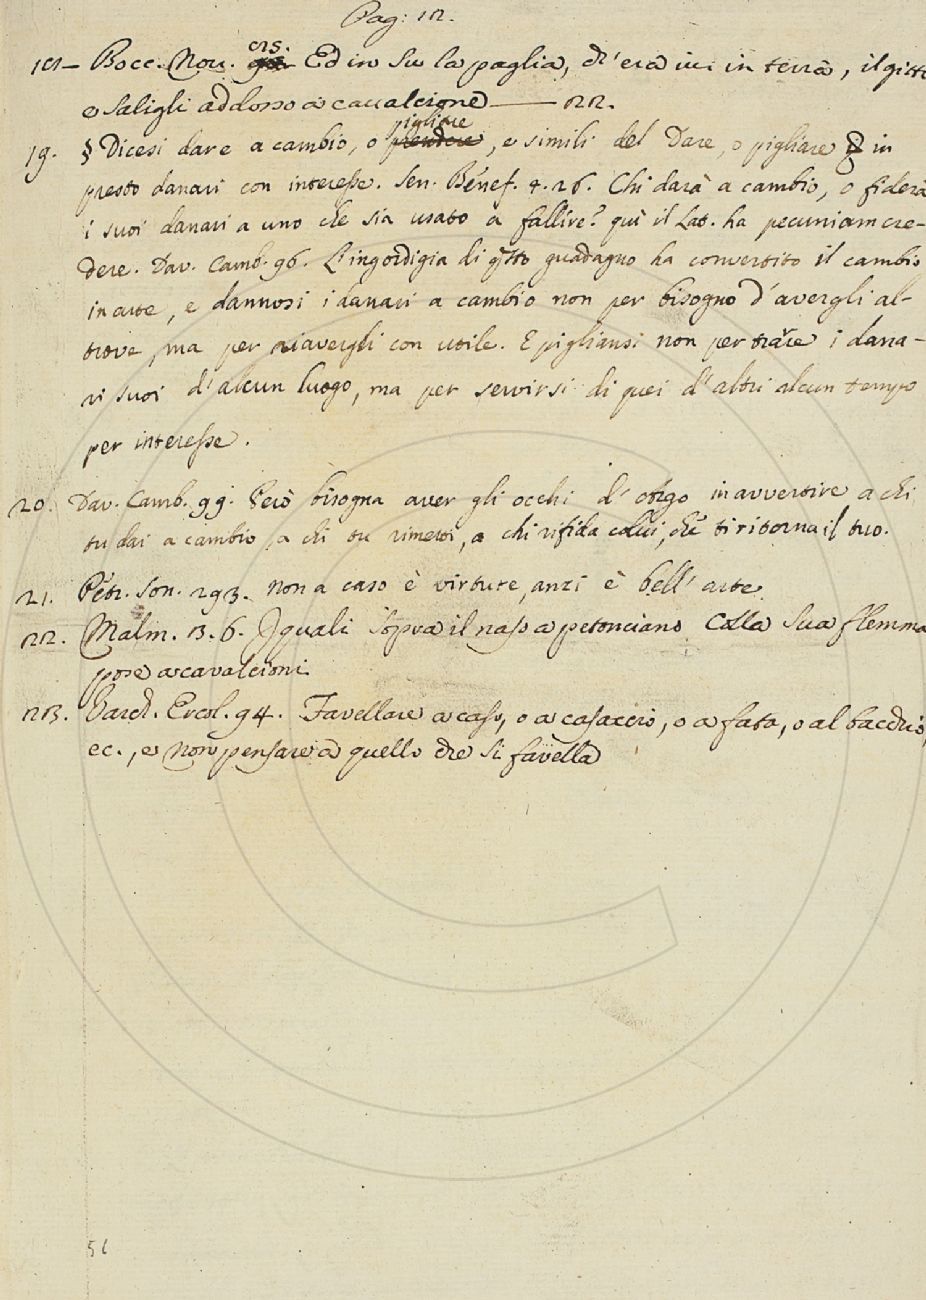 Pag: 12.
18 – Bocc. Nov. Ed in su la paglia, ch'era ivi in terra, il gittò
e salìgli addosso a cavalcione —— 22.
19. § Dicesi dare a cambio, o pigliare, e simili del Dare, o pigliare in
presto danari con interesse. Sen. Benef. 4. 26. Chi darà a cambio, o fiderà
i suoi danari a uno che sia usato a fallire? quì il Lat. ha pecuniam cre-
dere. Dav. Camb. 96. L'ingordigia di qsto guadagno ha convertito il cambio
in arte, e dannosi i danari a cambio non per bisogno d'avergli al-
trove, ma per riavergli con utile. E pigliansi non per trarre i dana-
ri suoi d'alcun luogo, ma per servirsi di quei d'altri alcun tempo
per interesse.
20. Dav. Camb. 99. Però bisogna aver gli occhi d'Argo in avvertire a chi
tu dai a cambio, a chi tu rimetti, a chi rifida colui, che ti ritorna il tuo.
21. Petr. Son. 293. Non a caso è virtute, anzi è bell'arte.
22. Malm. 3. 6. I quali sopra il naso a petonciano Colla sua flemma
pose a cavalcioni.
23. Varch. Ercol. 94. Favellare a caso, o a casaccio, o a fata, o al bacchio,
ec., e non pensare a quello che si favella
56